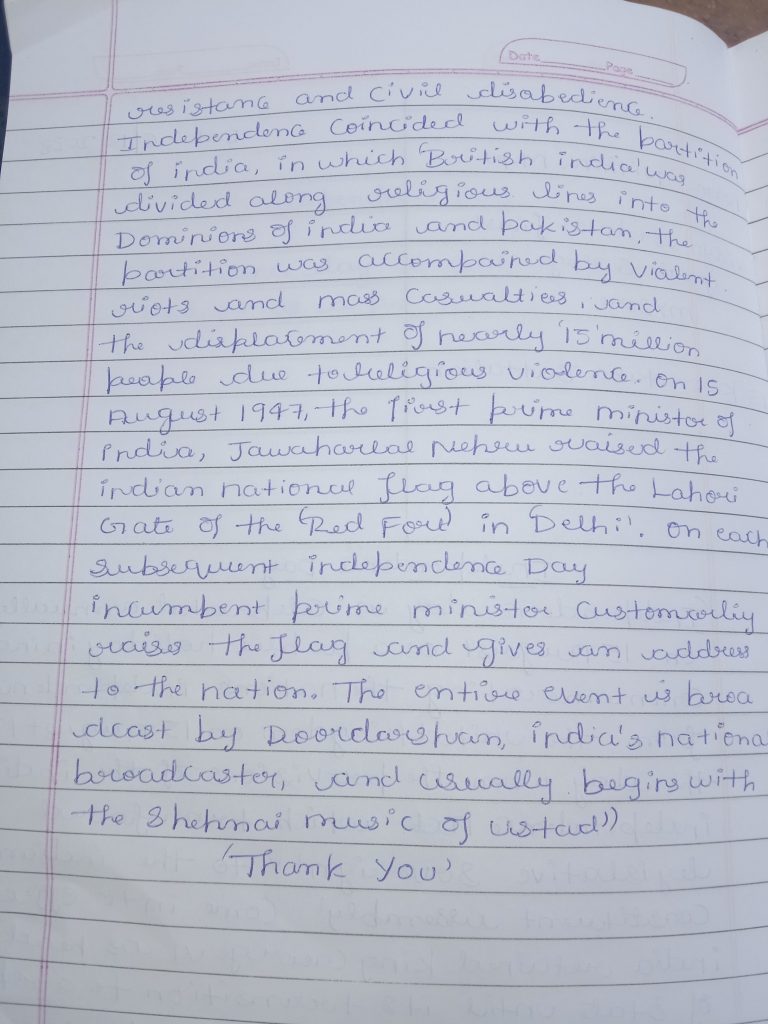 Date Page
resistance and civil disabedience.
Independence Coincided with the partition
of india, in which 'British india' was
divided along religious lines into the
Dominions of india and pakistan, the
partition was accompained by vialent
riots and mass casualties, and
the displacement of nearly '15' million
peaple due to religious violence. on 15
August 1947, the first prime minister of
India, Jawaharlal Nehru raised the
indian national flag above the Lahori
Gate of the 'Red Fort' in 'Delhi'. on each
subsequent independence Day
incumbent prime minister customarliy
raises the flag and gives an address
to the nation. The entire event is broa
dcast by Doordarshan, india's national
broadcaster, and usually begins with
the Shehnai music of ustad'')
'Thank You'